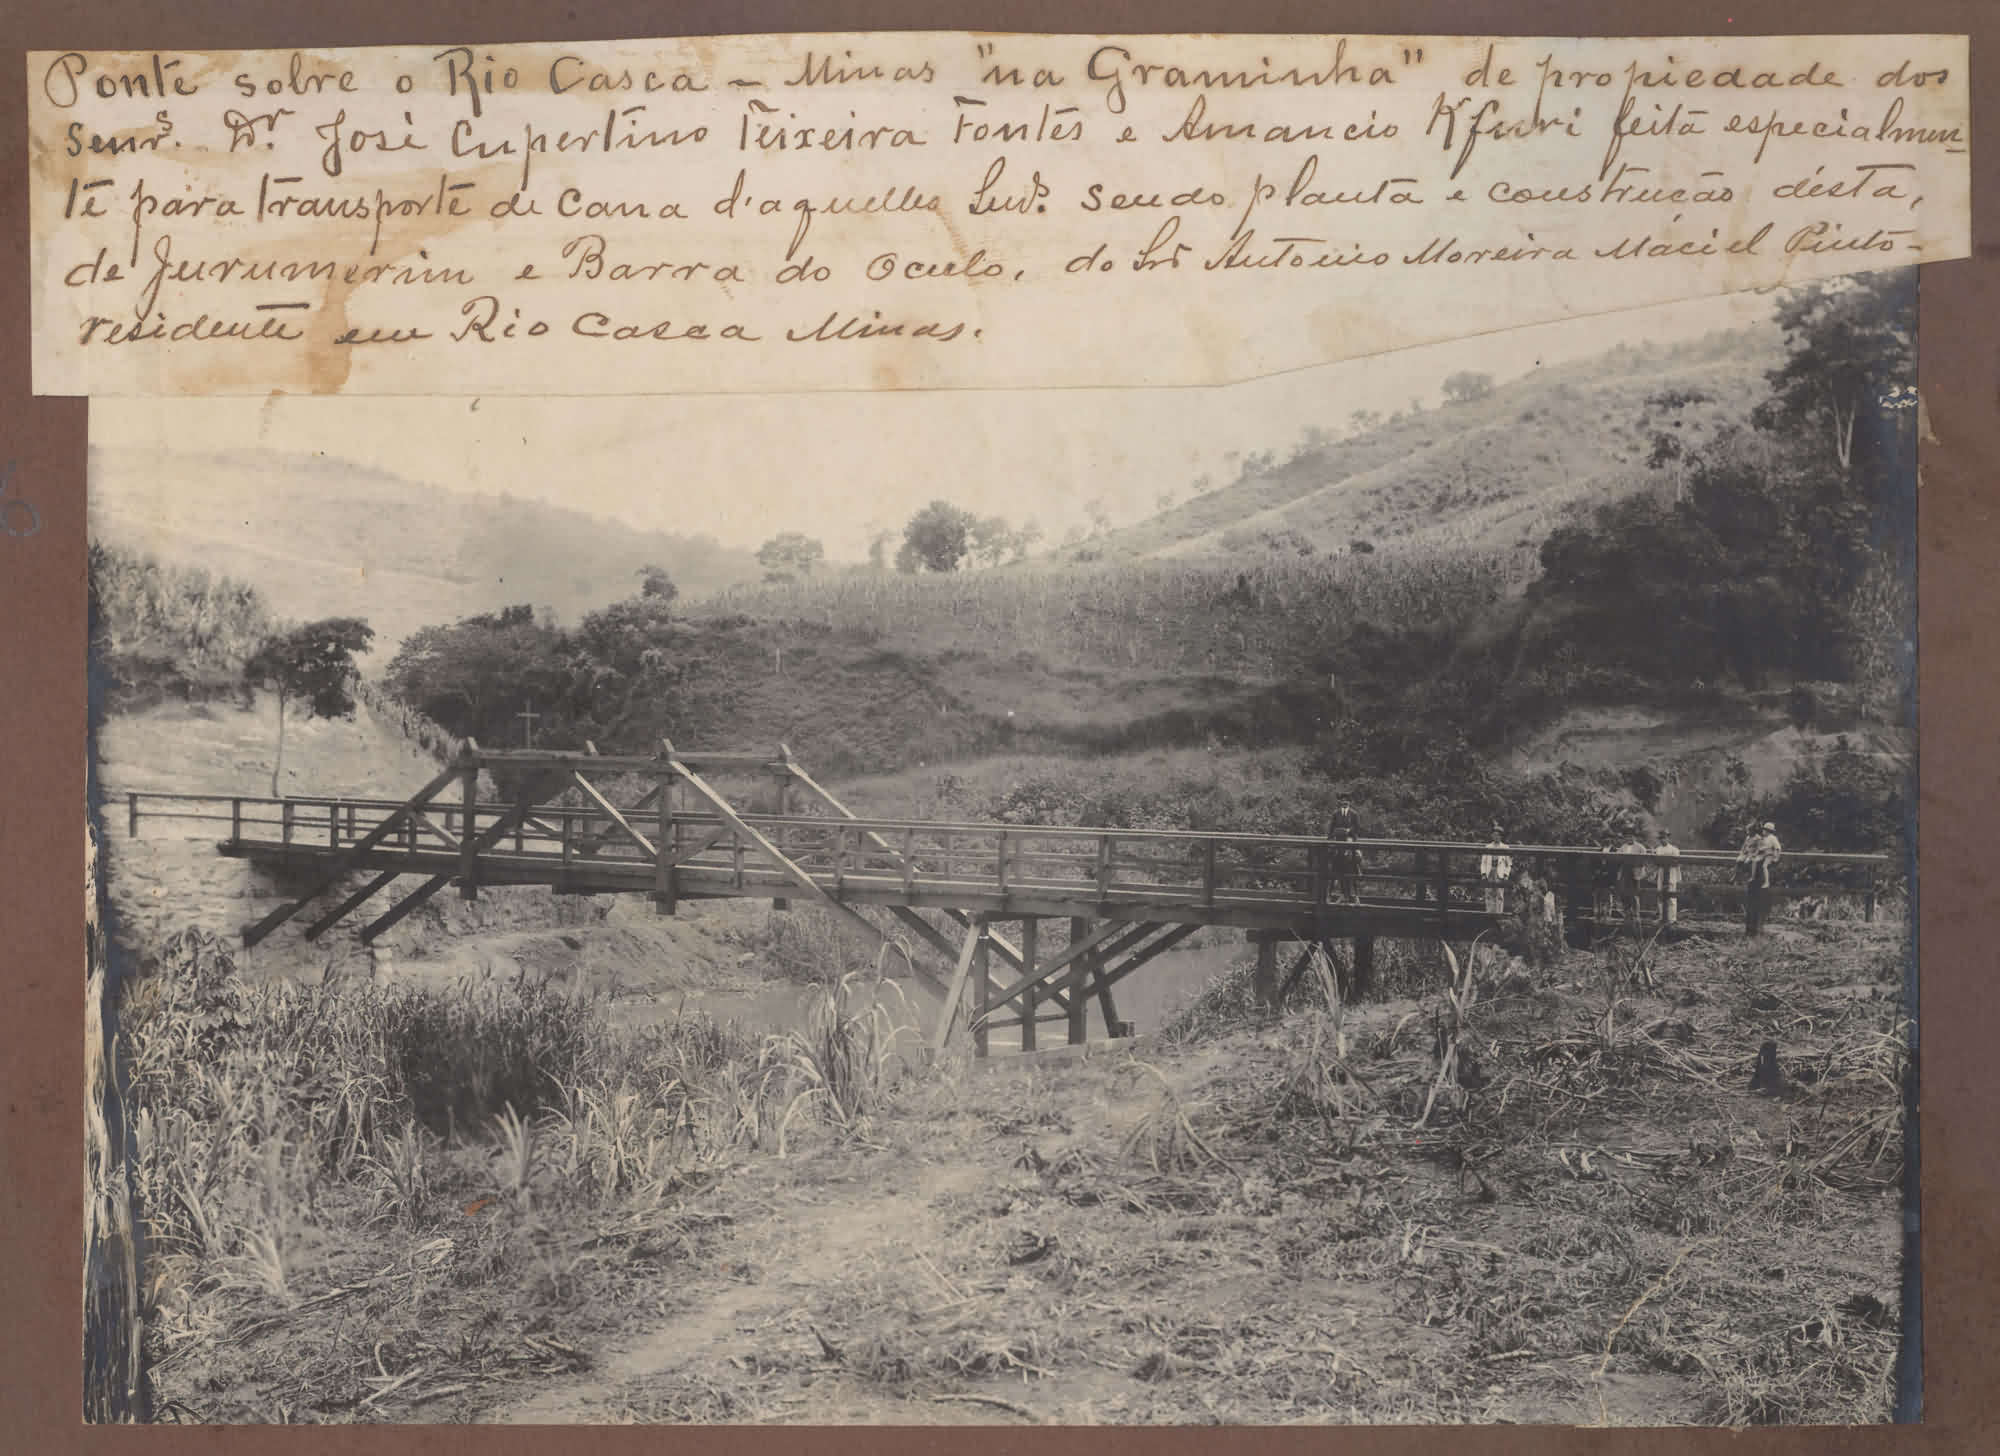 Ponte sobre o Rio Casca - Minas "na Graminha" de propiedade dos
Senrs. Dr. José Cupertino Teixeira Fontes e Amancio Kfuri feita especialmen-
te para transporte de Cana d'aquelles Snrs. sendo planta e construcção désta,
de Jurumerim e Barra do Oculo, do Snr Antonio Moreira Maciel Pinto-
residente em Rio Casca Minas.
6